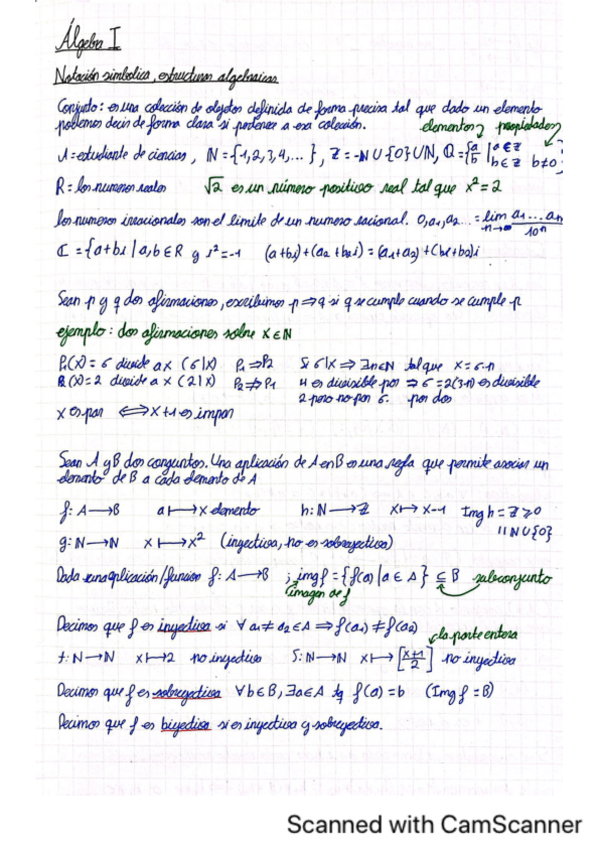 Álgebra I
Notación simbolica, estructuras algebraicas
Conjunto: es una colección de objetos definida de forma precisa tal que dado un elemento
podemos decir de forma clara si pertenece a esa colección.
elementos propiedades
A = estudiante de ciencias, N = {1,2,3,4,... }, Z = -N ∪ {0} ∪ N, Q = {a/b | a ∈ Z b ∈ Z b≠0}
R = los numeros reales √2 es un número positivo real tal que x² = 2
los numeros irracionales son el limite de un numero racional. 0,a₁,a₂... = lim n→∞ a₁...an/10ⁿ
C = {a+bi | a,b ∈ R y i² = -1 (a+bi)+(a₂+b₂i) = (a₁+a₂)+(b₁+b₂)i
Sean p y q dos afirmaciones, escribimos p ⇒ q si q se cumple cuando se cumple p
ejemplo: dos afirmaciones sobre X ∈ N
P₁(X) = 6 divide a x (6|X) P₁ ⇒ P₂ Si 6|X ⇒ ∃n∈N tal que X = 6·n
P₂(X) = 2 divide a x (2|X) P₂ ⇏ P₁ 4 es divisible por ⇒ 6 = 2(3·n) es divisible
2 pero no por 6. por dos
x es par ⟺ x+1 es impar
Sean A y B dos conjuntos. Una aplicación de A en B es una regla que permite asociar un
elemento de B a cada elemento de A
f: A → B a ↦ x elemento h: N → Z X ↦ X-1 Img h = Z ≥ 0
g: N → N x ↦ x² (inyectiva, no es sobreyectiva) || N∪{0}
Dada una aplicación/funcion f: A → B ; img f = {f(a) | a ∈ A} ⊆ B subconjunto
(imagen de f
Decimos que f es inyectiva si ∀ a₁ ≠ a₂ ∈ A ⇒ f(a₁) ≠ f(a₂)
la parte entera
t: N → N x ↦ 2 no inyectiva S: N → N x ↦ [x+1/2] no inyectiva
Decimos que f es sobreyectiva ∀b∈B, ∃a∈A tq f(a) = b (Img f = B)
Decimos que f es biyectiva si es inyectiva y sobreyectiva.
Scanned with CamScanner